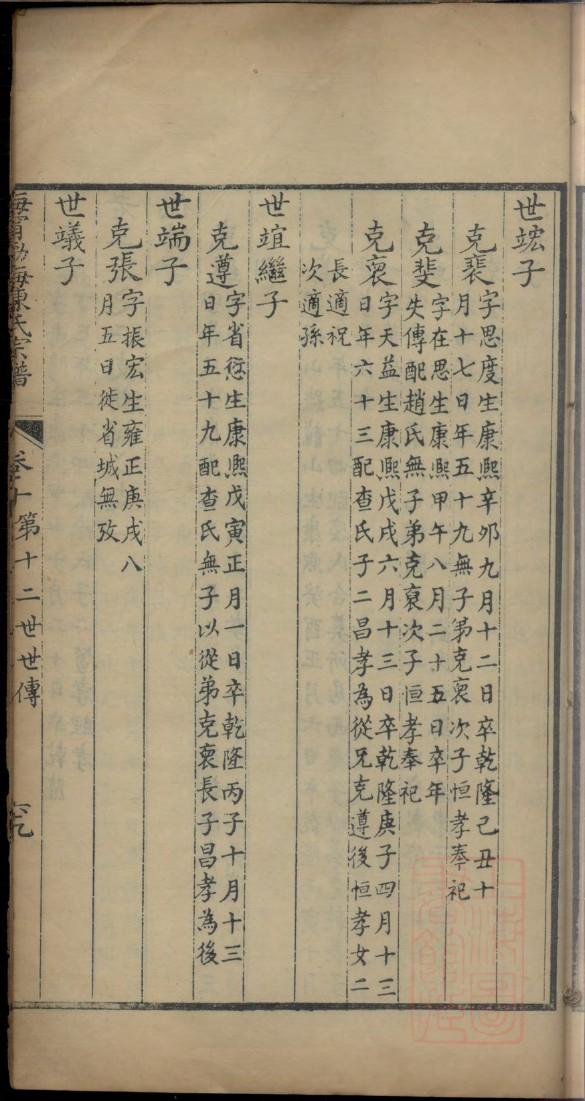 世竑子
克裴字思度生康熙辛夘九月十二日卒乾隆己丑十
月十七日年五十九無子弟克裒次子恒孝奉祀
克斐字在思生康熙甲午八月二十五日卒年
失傳配趙氏無子弟克裒次子恒孝奉祀
克裒字天益生康熙戊戌六月十三日卒乾隆庚子四月十三
日年六十三配查氏子二昌孝為從兄克遵後恒孝女二
長適祝
次適孫
世竩繼子
克遵字省愆生康熙戊寅正月一日卒乾隆丙子十月十三
日年五十九配查氏無子以從弟克裒長子昌孝為後
世端子
克張字振宏生雍正庚戌八
月五日徙省城無攷
世䗑子
海寧渤海陳氏宗譜 卷十 第十二世世傳